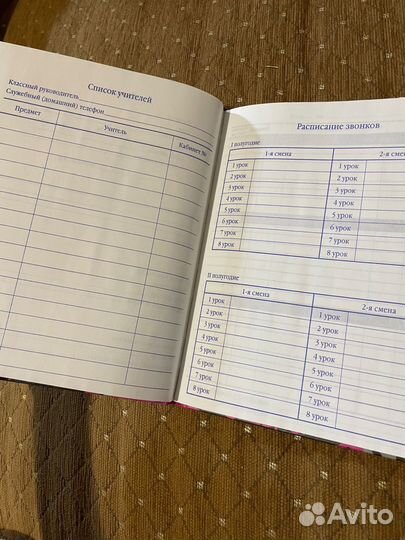 Список учителей
Классный руководитель
Служебный (домашний) телефон
Предмет Учитель Кабинет №
Расписание звонков
I полугодие
1-я смена 2-я смен
1 урок 1 урок
2 урок 2 урок
3 урок 3 урок
4 урок 4 урок
5 урок 5 урок
6 урок 6 урок
7 урок 7 урок
8 урок 8 урок
II полугодие
1-я смена 2-я смена
1 урок 1 урок
2 урок 2 урок
3 урок 3 урок
4 урок 4 урок
5 урок 5 урок
6 урок 6 урок
7 урок 7 урок
8 урок 8 урок
Avito